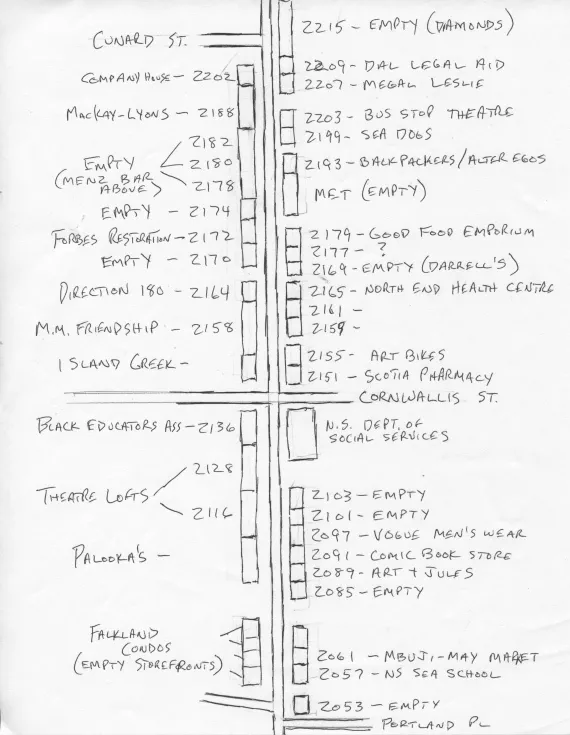 2215 - EMPTY (DIAMONDS)
CUNARD ST.
2209 - DAL LEGAL AID
COMPANY HOUSE - 2202
2207 - MEGAL LESLIE
MACKAY-LYONS - 2188
2203 - BUS STOP THEATRE
2199 - SEA DOGS
2182
EMPTY - 2180
(MENZ BAR
ABOVE) 2178
2193 - BACKPACKERS/ALTER EGOS
MET (EMPTY)
EMPTY - 2174
FORBES RESTORATION - 2172
EMPTY - 2170
2179 - GOOD FOOD EMPORIUM
2177 - ?
2169 - EMPTY (DARRELL'S)
DIRECTION 180 - 2164
2165 - NORTH END HEALTH CENTRE
2161 -
2159 -
M.M. FRIENDSHIP - 2158
ISLAND GREEK -
2155 - ART BIKES
2151 - SCOTIA PHARMACY
CORNWALLIS ST.
BLACK EDUCATORS ASS - 2136
N.S. DEPT. OF
SOCIAL SERVICES
2128
THEATRE LOFTS
2116
2103 - EMPTY
2101 - EMPTY
2097 - VOGUE MEN'S WEAR
PALOOKA'S -
2091 - COMIC BOOK STORE
2089 - ART + JULES
2085 - EMPTY
FALKLAND
CONDOS
(EMPTY STOREFRONTS)
2061 - MBUJI-MAY MARKET
2057 - NS SEA SCHOOL
2053 - EMPTY
PORTLAND PL